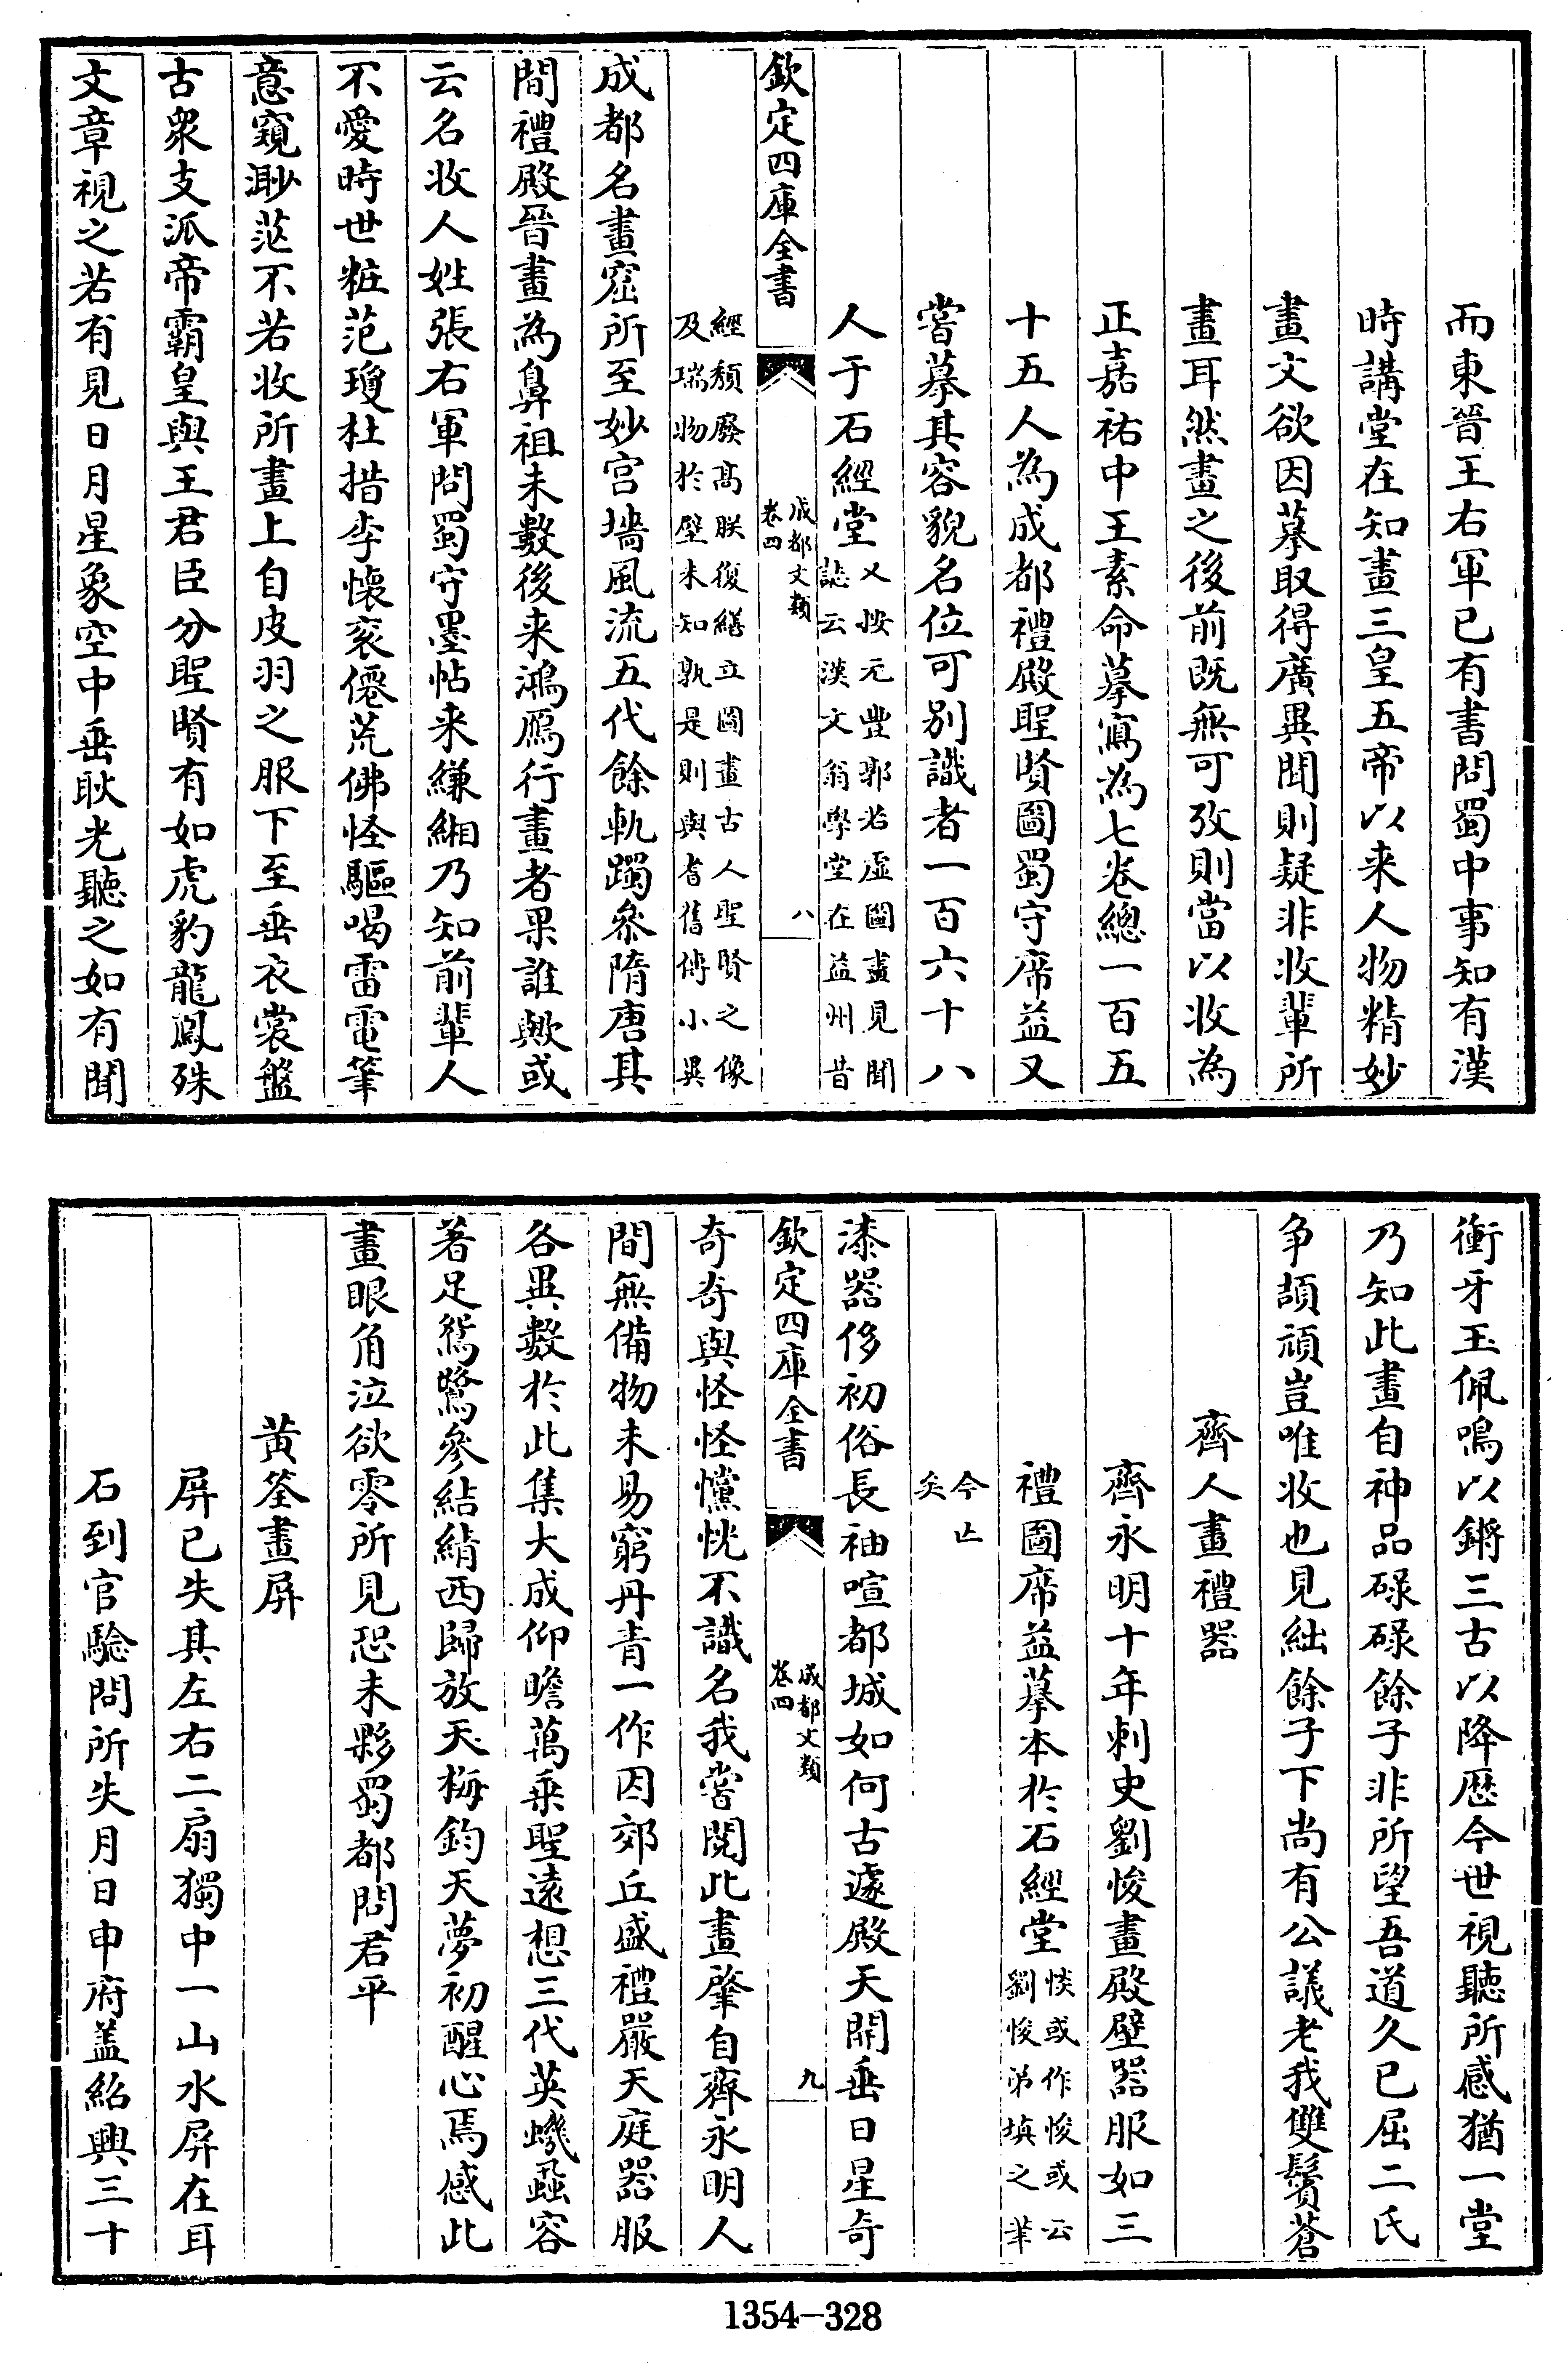 而東晉王右軍已有書問蜀中事知有漢
時講堂在知畫三皇五帝以来人物精妙
畫文欲因摹取得廣異聞則疑非收輩所
畫耳然畫之後前既無可攷則當以收為
正嘉祐中王素命摹寫為七卷總一百五
十五人為成都禮殿聖賢圖蜀守席益又
嘗摹其容貌名位可别識者一百六十八
人于石經堂又按元豐郭若虛圖畫見聞
誌云漢文翁學堂在益州昔
欽定四庫全書
成都文類
卷四
八
經頽廢高朕復繕立圖畫古人聖賢之像
及瑞物於壁未知孰是則與耆舊傳小異
成都名畫窟所至妙宫墻風流五代餘軌躅叅隋唐其
間禮殿晉畫為鼻祖未數後来鴻鴈行畫者果誰歟或
云名收人姓張右軍問蜀守墨帖来縑緗乃知前輩人
不愛時世粧范瓊杜措李懷衮僊荒佛怪驅喝雷電筆
意窺渺茫不若收所畫上自皮羽之服下至垂衣裳盤
古衆支派帝霸皇與王君臣分聖賢有如虎豹龍鳳殊
文章視之若有見日月星象空中垂耿光聽之如有聞
衝牙玉佩鳴以鏘三古以降歴今世視聽所感猶一堂
乃知此畫自神品碌碌餘子非所望吾道久已屈二氏
争頡頏豈唯收也見絀餘子下尚有公議老我雙鬢蒼
齊人畫禮器
齊永明十年刺史劉悛畫殿壁器服如三
禮圖席益摹本於石經堂惔或作悛或云
劉悛弟瑱之筆
今亡
矣
漆器侈初俗長袖喧都城如何古遽殿天開垂日星奇
欽定四庫全書
成都文類
卷四
九
奇奇與怪怪戃恍不識名我嘗閱此畫肇自齊永明人
間無備物未易窮丹青一作因郊丘盛禮嚴天庭器服
各異數於此集大成仰瞻萬乗聖遠想三代英蟣蝨容
著足鴛鷺參結綪西歸放天梅鈞天夢初醒心焉感此
畫眼角泣欲零所見恐未夥蜀都問君平
黄筌畫屏
屏已失其左右二扇獨中一山水屏在耳
石到官騐問所失月日申府盖紹興三十
1354-328